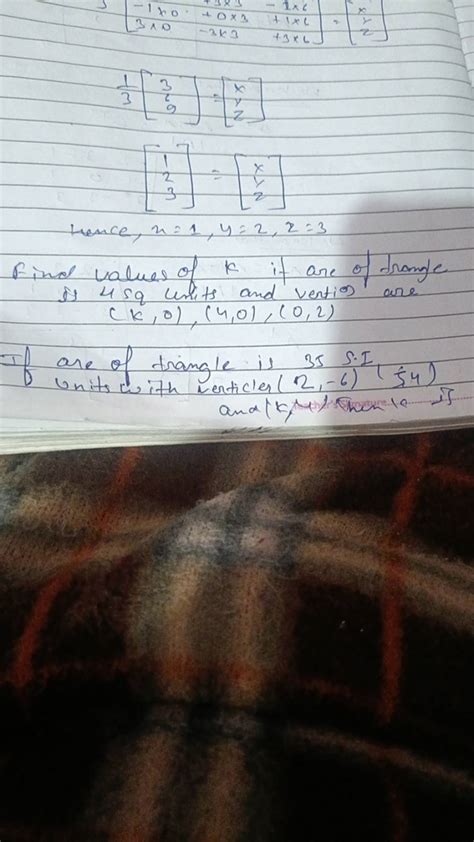 [-1x0 +0x3 +1x6] = [x
3x0 -3x3 +3x6] z]
1/3 [3 6 9] = [x y z]
[1 2 3] = [x y z]
Hence, x=1, y=2, z=3
find values of K if are of trangle
is 4 sq units and vertics are
(K,0), (4,0), (0,2)
If are of triangle is 35 S.I
units with verticles (2,-6) (54)
and (K, then is